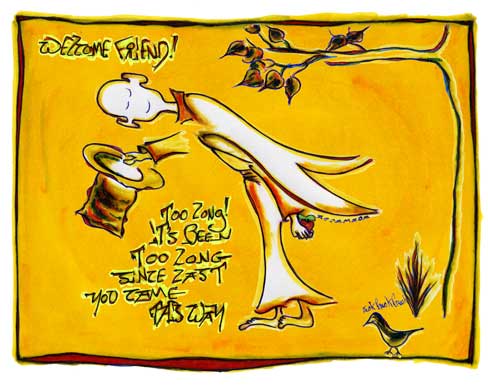 WELCOME FRIEND!
TOO LONG!
IT'S BEEN
TOO LONG
SINCE LAST
YOU CAME
THIS WAY